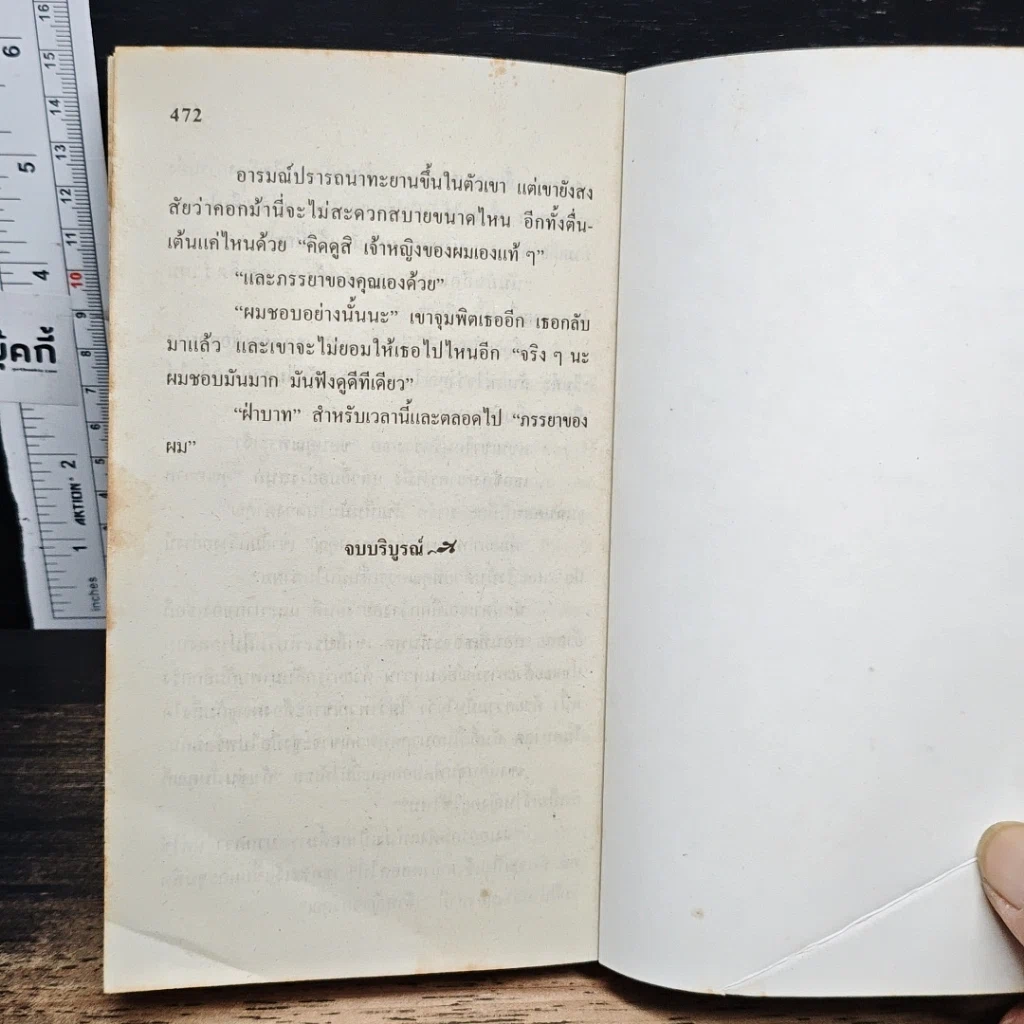 472
อารมณ์ปรารถนาทะยานขึ้นในตัวเขา แต่เขายังสง
สัยว่าคอกม้านี่จะไม่สะดวกสบายขนาดไหน อีกทั้งตื่น-
เต้นแค่ไหนด้วย “คิดดูสิ เจ้าหญิงของผมเองแท้ ๆ”
“และภรรยาของคุณเองด้วย”
“ผมชอบอย่างนั้นนะ” เขาจุมพิตเธออีก เธอกลับ
มาแล้ว และเขาจะไม่ยอมให้เธอไปไหนอีก “จริง ๆ นะ
ผมชอบมันมาก มันฟังดูดีทีเดียว”
“ฝ่าบาท” สำหรับเวลานี้และตลอดไป “ภรรยาของ
ผม”
จบบริบูรณ์
16
15
14
13
12
11
10
9
8
7
6
5
4
6
5
4
2
1
AKTION
inches